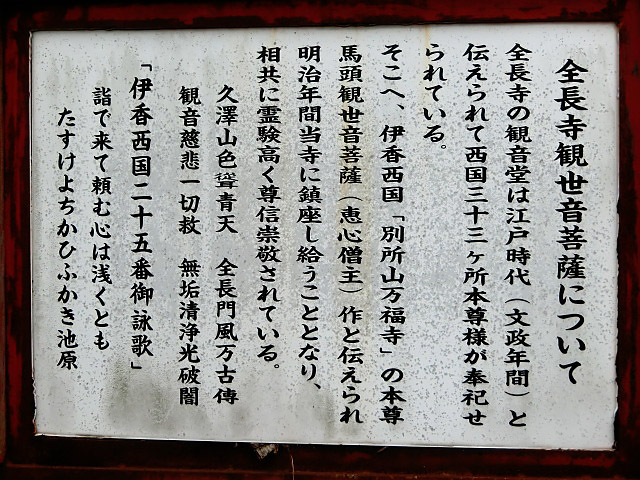 全長寺観世音菩薩について
全長寺の観音堂は江戸時代（文政年間）と
伝えられて西国三十三ヶ所本尊様が奉祀せ
られている。
そこへ、伊香西国「別所山万福寺」の本尊
馬頭観世音菩薩（恵心僧主）作と伝えられ
明治年間当寺に鎮座し給うこととなり、
相共に霊験高く尊信崇敬されている。
久澤山色聳青天　全長門風万古傳
観音慈悲一切救　無垢清浄光破闇
「伊香西国二十五番御詠歌」
詣で来て頼む心は浅くとも
たすけよちかひふかき池原